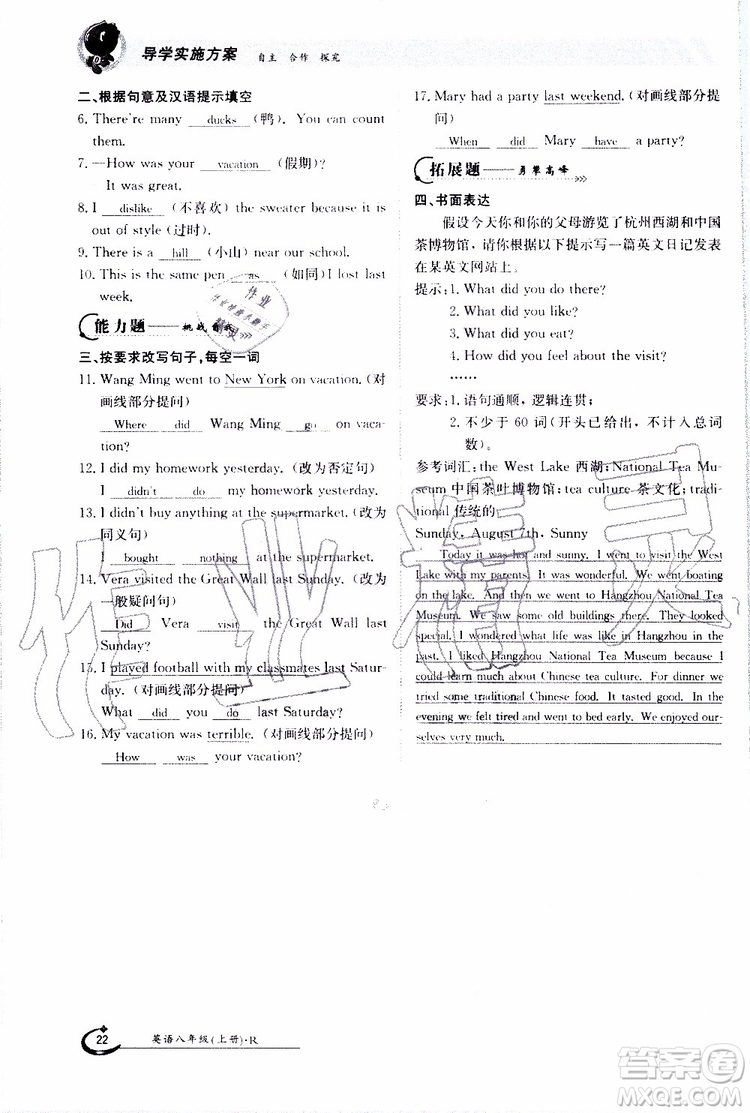 导学实施方案 自主 合作 探究
二、根据句意及汉语提示填空
6. There're many ducks (鸭). You can count
them.
7. —How was your vacation (假期)?
It was great.
8. I dislike (不喜欢) the sweater because it is
out of style(过时).
9. There is a hill (小山) near our school.
10. This is the same pen as (如同) I lost last
week.
能力题
三、按要求改写句子,每空一词
11. Wang Ming went to New York on vacation. (对
画线部分提问)
Where did Wang Ming go on vaca-
tion?
12. I did my homework yesterday. (改为否定句)
I didn't do my homework yesterday.
13. I didn't buy anything at the supermarket. (改为
同义句)
I bought nothing at the supermarket.
14. Vera visited the Great Wall last Sunday. (改为
一般疑问句)
Did Vera visit the Great Wall last
Sunday?
15. I played football with my classmates last Satur-
day. (对画线部分提问)
What did you do last Saturday?
16. My vacation was terrible. (对画线部分提问)
How was your vacation?
17. Mary had a party last weekend. (对画线部分提
问)
When did Mary have a party?
拓展题 勇攀高峰
四、书面表达
假设今天你和你的父母游览了杭州西湖和中国
茶博物馆,请你根据以下提示写一篇英文日记发表
在某英文网站上。
提示:1. What did you do there?
2. What did you like?
3. What did you eat?
4. How did you feel about the visit?
……
要求:1. 语句通顺,逻辑连贯;
2. 不少于 60 词(开头已给出,不计入总词
数)。
参考词汇:the West Lake 西湖;National Tea Mu-
seum 中国茶叶博物馆;tea culture 茶文化;tradi-
tional 传统的
Sunday, August 7th, Sunny
Today it was hot and sunny. I went to visit the West
Lake with my parents. It was wonderful. We went boating
on the lake. And then we went to Hangzhou National Tea
Museum. We saw some old buildings there. They looked
special. I wondered what life was like in Hangzhou in the
past. I liked Hangzhou National Tea Museum because I
could learn much about Chinese tea culture. For dinner we
tried some traditional Chinese food. It tasted good. In the
evening we felt tired and went to bed early. We enjoyed our-
selves very much.
22 英语八年级(上册)·R
作业精灵